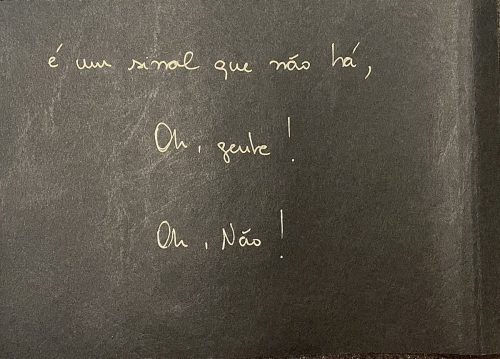 é um sinal que não há,
Oh, gente!
Oh, Não!